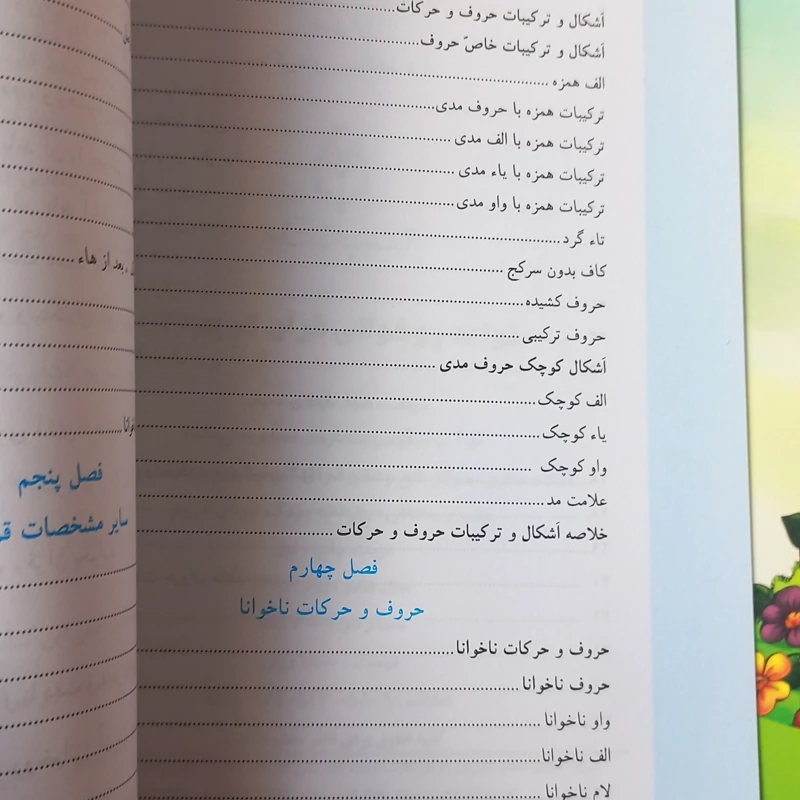 أشکال و ترکیبات حروف و حرکات
أشکال و ترکیبات خاصّ حروف
الف همزه
ترکیبات همزه با حروف مدی
ترکیبات همزه با الف مدی
ترکیبات همزه با یاء مدی
ترکیبات همزه با واو مدی
تاء گرد
کاف بدون سرکج
حروف کشیده
حروف ترکیبی
أشکال کوچک حروف مدی
الف کوچک
یاء کوچک
واو کوچک
علامت مد
خلاصه أشکال و ترکیبات حروف و حرکات
فصل چهارم
حروف و حرکات ناخوانا
حروف و حرکات ناخوانا
حروف ناخوانا
واو ناخوانا
الف ناخوانا
لام ناخوانا
بعد از هاء
فصل پنجم
سایر مشخصات